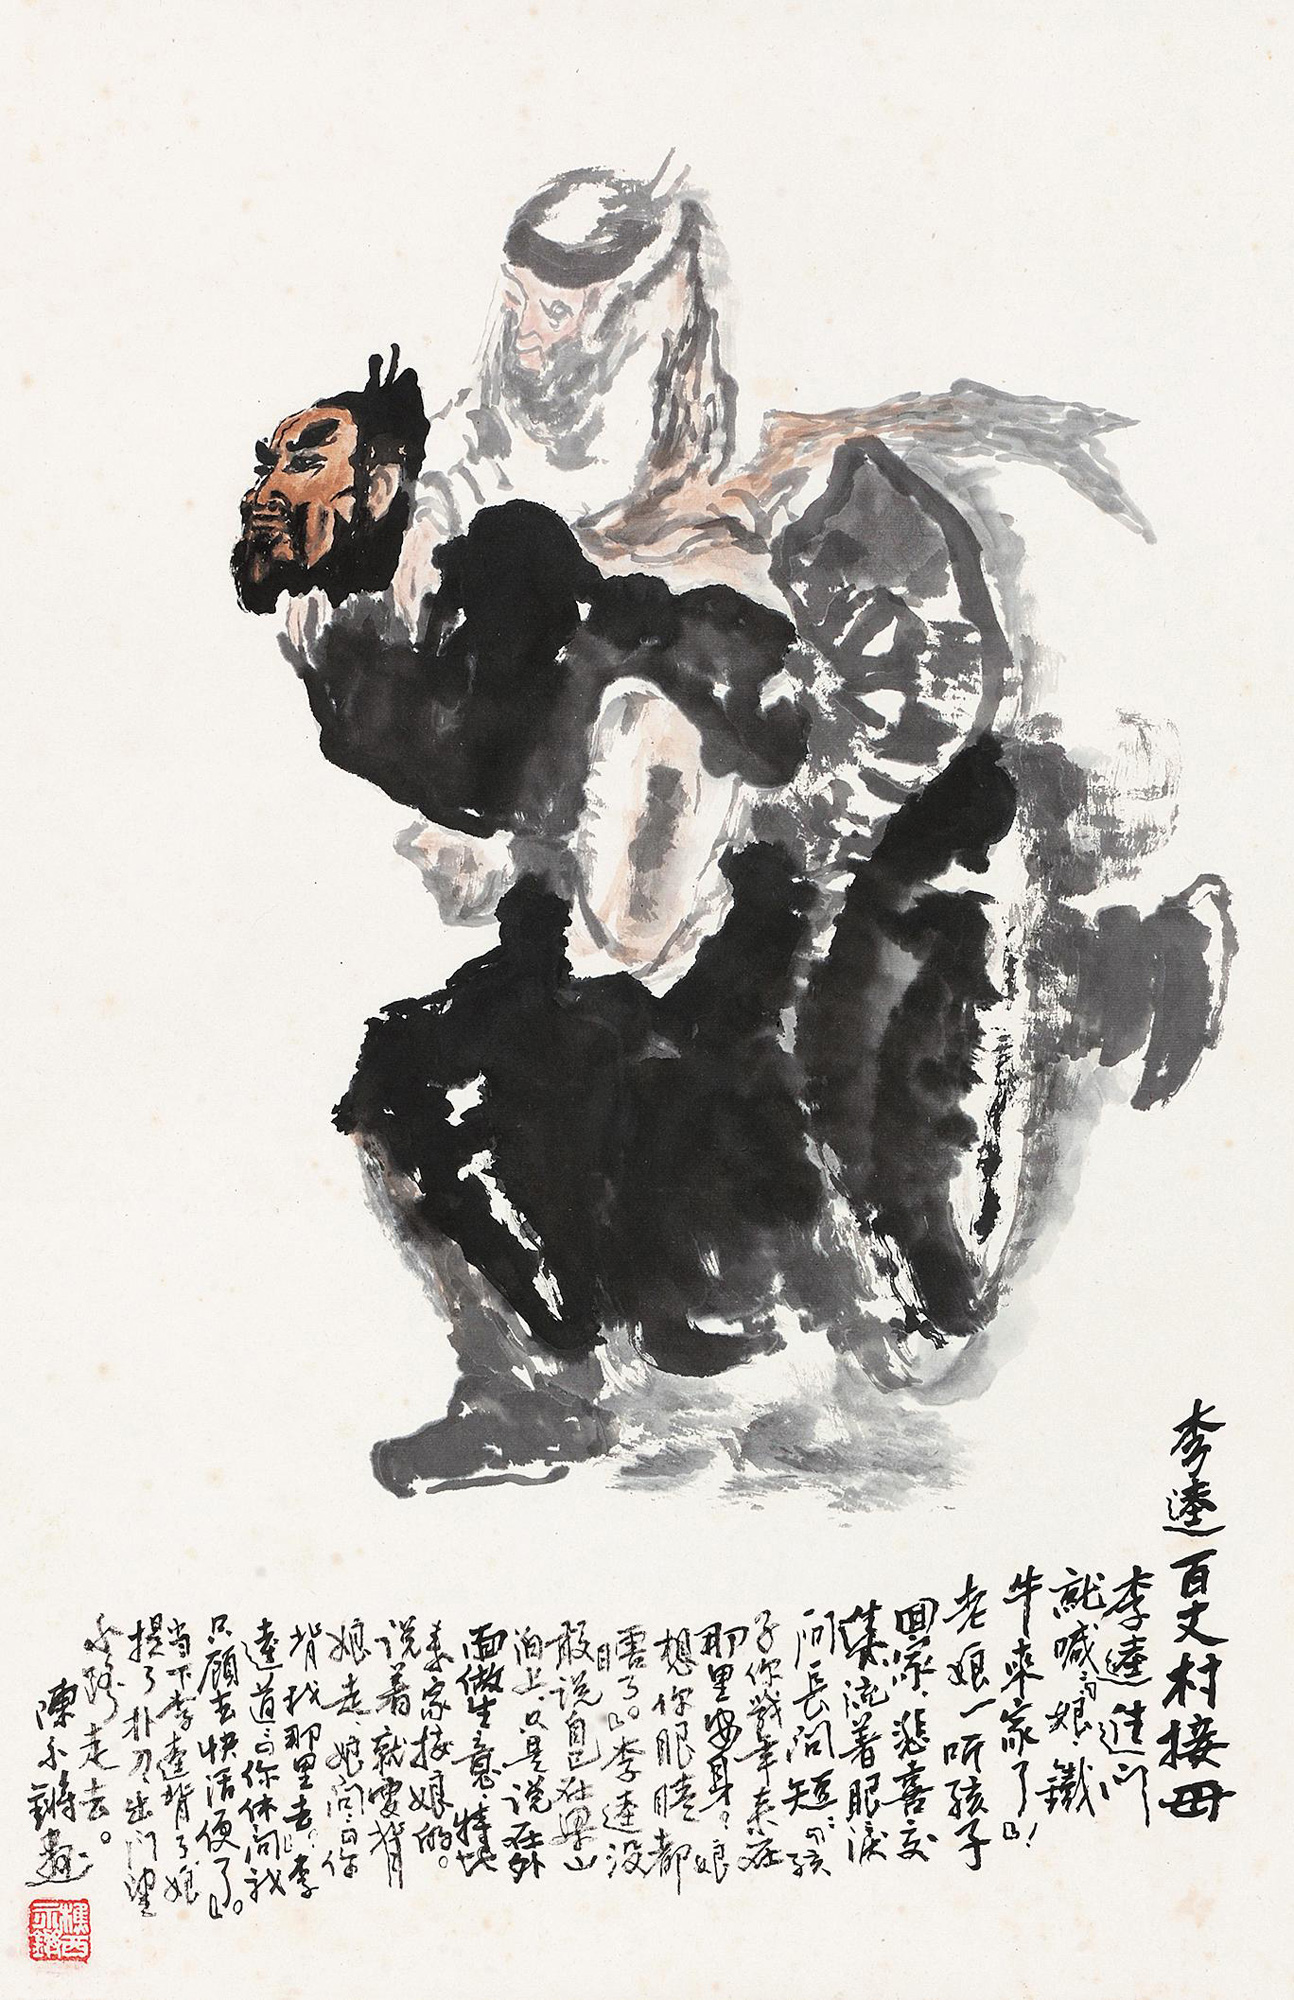 李逵百丈村接母
李逵進门
就喊:“娘,鐵
牛來家了”!
老娘一听孩子
回家,悲喜交
集,流着眼淚
问長问短:“孩
子你幾年來在
那里安身?娘
想你眼睛都
瞎了”。李逵没
敢说自己在梁山
泊上,只是说在外
面做生意,特地
來家接娘的。
说着就要背
娘走,娘问:“你
背我那里去?”李
逵道:“你休问我
只顧去快活便了”。
当下李逵背了娘
提了朴刀出门望
小路走去。
陳永鏘畫
樵西
永鏘